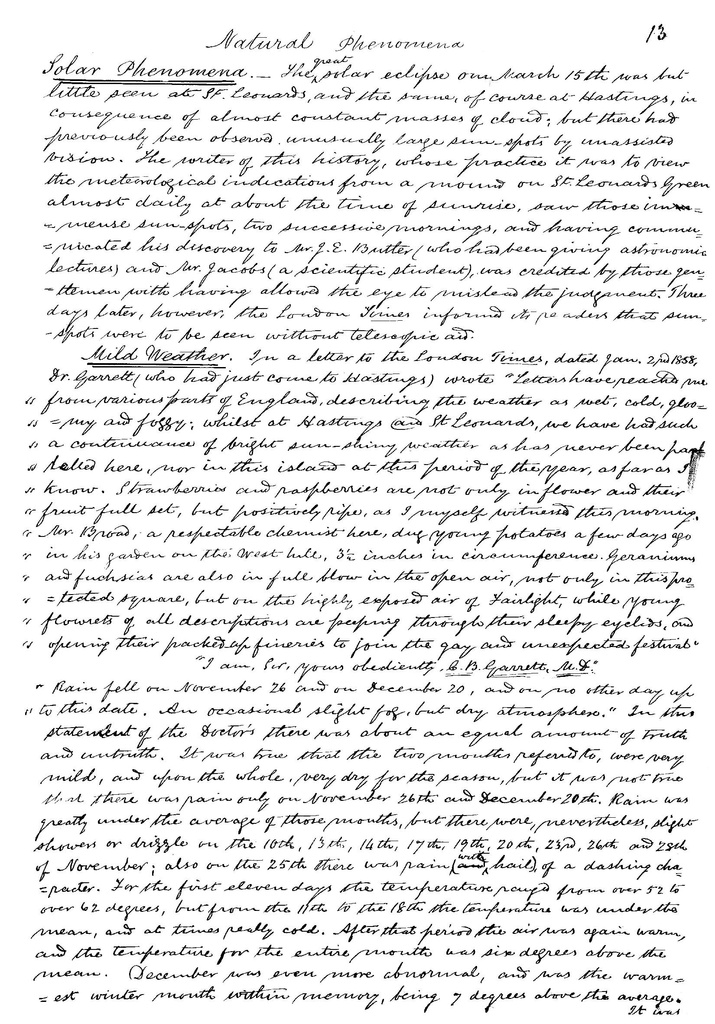 Natural Phenomena
13
Solar Phenomena. — The great solar eclipse on March 15th was but
little seen at St. Leonards, and the same, of course at Hastings, in
consequence of almost constant masses of cloud; but there had
previously been observed unusually large sun-spots by unassisted
vision. The writer of this history, whose practice it was to view
the meteorological indications from a mound on St. Leonards Green
almost daily at about the time of sunrise, saw those im=
=mense sun-spots, two successive mornings, and having commu=
=nicated his discovery to Mr. J. E. Butler (who had been giving astronomic
lectures) and Mr. Jacobs (a scientific student), was credited by those gen=
=tlemen with having allowed the eye to mislead the judgment. Three
days later, however, the London Times informed its readers that sun-
-spots were to be seen without telescopic aid.
Mild Weather. In a letter to the London Times, dated Jan. 2nd 1858,
Dr. Garrett (who had just come to Hastings) wrote "Letters have reached me
" from various parts of England, describing the weather as wet, cold, gloo=
" =my and foggy; whilst at Hastings and St Leonards, we have had such
" a continuance of bright sun-shiny weather as has never been paral
" lelled here, nor in this island at this period of the year, as far as I
" know. Strawberries and raspberries are not only in flower and their
" fruit full set, but positively ripe, as I myself witnessed this morning.
" Mr. Broad, a respectable chemist here, dug young potatoes a few days ago
" in his garden on the West hill, 3½ inches in circumference. Geraniums
" and fuchsias are also in full blow in the open air, not only in this pro=
" =tected square, but on the highly exposed air of Fairlight, while young
" flowrets of all descriptions are peeping through their sleepy eyelids, and
" opening their packed up fineries to join the gay and unexpected festival"
"I am, Sir, yours obediently, C. B. Garrett, M.D."
" Rain fell on November 26 and on December 20, and on no other day up
" to this date. An occasional slight fog, but dry atmosphere." In this
statement of the Doctor's there was about an equal amount of truth
and untruth. It was true that the two months referred to, were very
mild, and upon the whole, very dry for the season, but it was not true
that there was rain only on November 26th and December 20th. Rain was
greatly under the average of those months, but there were, nevertheless, slight
showers or drizzle on the 10th, 13th, 14th, 17th, 19th, 20th, 23rd, 26th and 28th
of November; also on the 25th there was rain (and with hail), of a dashing cha=
=racter. For the first eleven days the temperature ranged from over 52 to
over 62 degrees, but from the 11th to the 18th the temperature was under the
mean, and at times really cold. After that period the air was again warm,
and the temperature for the entire month was six degrees above the
mean. December was even more abnormal, and was the warm=
=est winter month within memory, being 7 degrees above the average.
It was